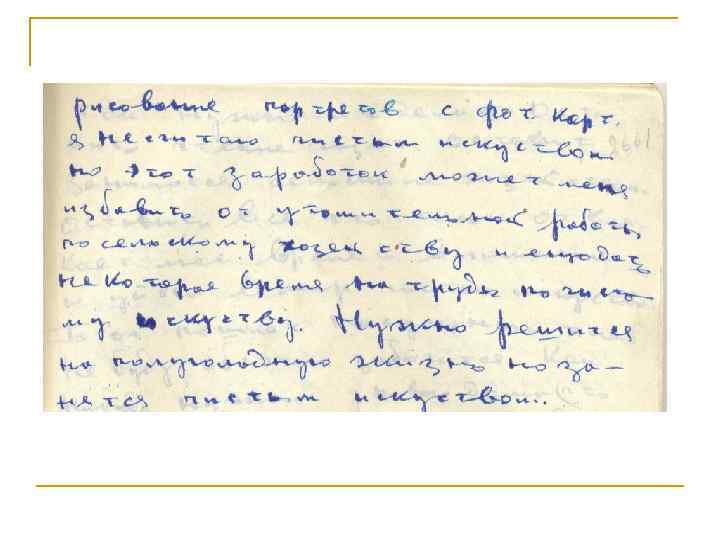 рисование портретов с фот. карт.
я несчитаю чистым искуством
но этот заработок может меня
избавить от утомительной работы
посельскому хозеиству и ещодать
некоторае время на труды почисто-
му искуству. Нужно решится
на полуголодную жизнь но за-
нятся чистым искуством..